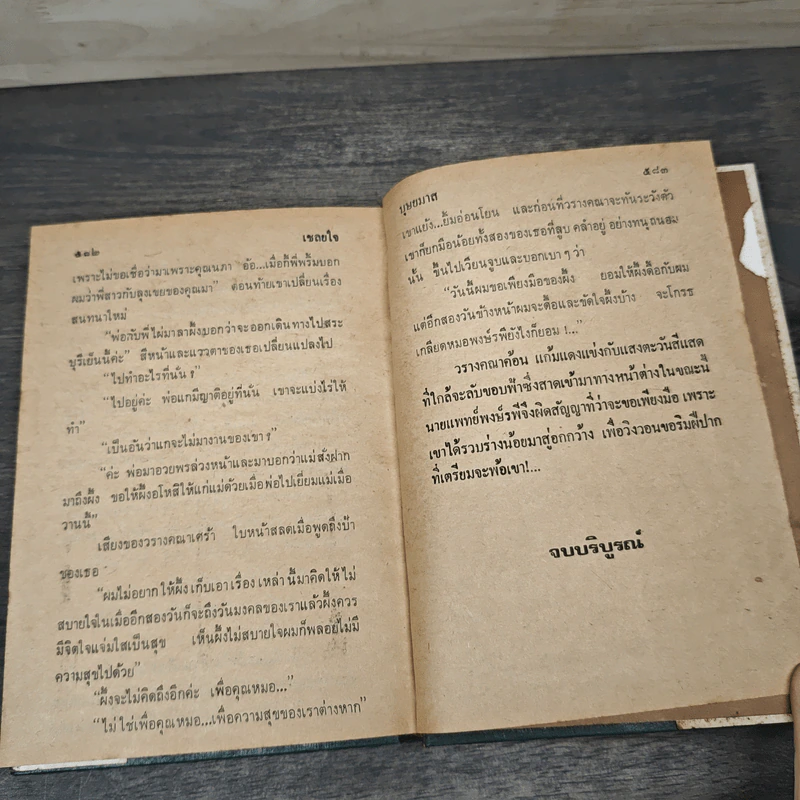 ๕๘๒
เชลยใจ
เพราะไม่ขอเชื่อว่ามาเพราะคุณนภา อ้อ...เมื่อกี้พี่พริ้มบอก
ผมว่าพี่สาวกับลุงเขยของคุณมา” ตอนท้ายเขาเปลี่ยนเรื่อง
สนทนาใหม่
“พ่อกับพี่ไผ่มาลาผึ้งบอกว่าจะออกเดินทางไปสระ
บุรีเย็นนี้ค่ะ” สีหน้าและแววตาของเธอเปลี่ยนแปลงไป
“ไปทำอะไรที่นั่น ?”
“ไปอยู่ค่ะ พ่อแกมีญาติอยู่ที่นั่น เขาจะแบ่งไร่ให้
ทำ”
“เป็นอันว่าแกจะไม่มางานของเขา ?”
“ค่ะ พ่อมาอวยพรล่วงหน้าและมาบอกว่าแม่สั่งฝาก
มาถึงผึ้ง ขอให้ผึ้งอโหสิให้แก่แม่ด้วยเมื่อพ่อไปเยี่ยมแม่เมื่อ
วานนี้”
เสียงของวรางคณาเศร้า ใบหน้าสลดเมื่อพูดถึงป้า
ของเธอ
“ผมไม่อยากให้ผึ้งเก็บเอาเรื่องเหล่านี้มาคิดให้ไม่
สบายใจในเมื่ออีกสองวันก็จะถึงวันมงคลของเราแล้วผึ้งควร
มีจิตใจแจ่มใสเป็นสุข เห็นผึ้งไม่สบายใจผมก็พลอยไม่มี
ความสุขไปด้วย”
“ผึ้งจะไม่คิดถึงอีกค่ะ เพื่อคุณหมอ...”
“ไม่ใช่เพื่อคุณหมอ...เพื่อความสุขของเราต่างหาก”
บุษยมาส
๕๘๓
เขาแย้ง...ยิ้มอ่อนโยน และก่อนที่วรางคณาจะทันระวังตัว
เขาก็ยกมือน้อยทั้งสองของเธอที่ลูบ คลำอยู่ อย่างทนุถนอม
นั้น ขึ้นไปเวียนจูบและบอกเบา ๆ ว่า
“วันนี้ผมขอเพียงมือของผึ้ง ยอมให้ผึ้งดื้อกับผม
แต่อีกสองวันข้างหน้าผมจะดื้อและขัดใจผึ้งบ้าง จะโกรธ
เกลียดหมอพงษ์รพียังไงก็ยอม !...”
วรางคณาค้อน แก้มแดงแข่งกับแสงตะวันสีแสด
ที่ใกล้จะลับขอบฟ้าซึ่งสาดเข้ามาทางหน้าต่างในขณะนี้
นายแพทย์พงษ์รพีจึงผิดสัญญาที่ว่าจะขอเพียงมือ เพราะ
เขาได้รวบร่างน้อยมาสู่อกกว้าง เพื่อวิงวอนขอริมฝีปาก
ที่เตรียมจะพ้อเขา!...
จบบริบูรณ์